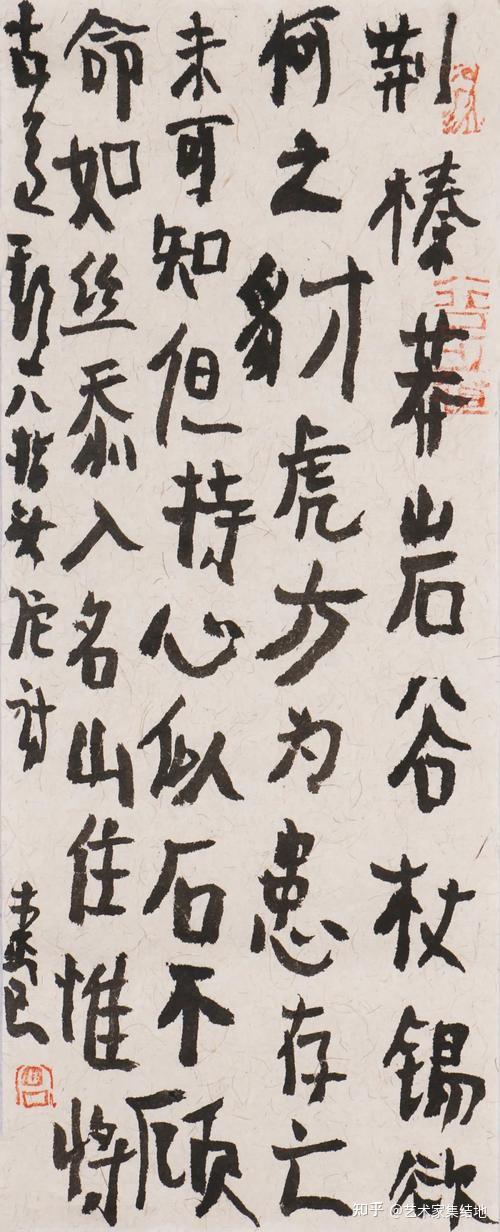 荆榛莽岩谷杖锡欲
何之豺虎方为患存亡
未可知但持心似石不顾
命如丝忝入名山住惟将
古道 八指头陀诗
知乎 @艺术家集结地